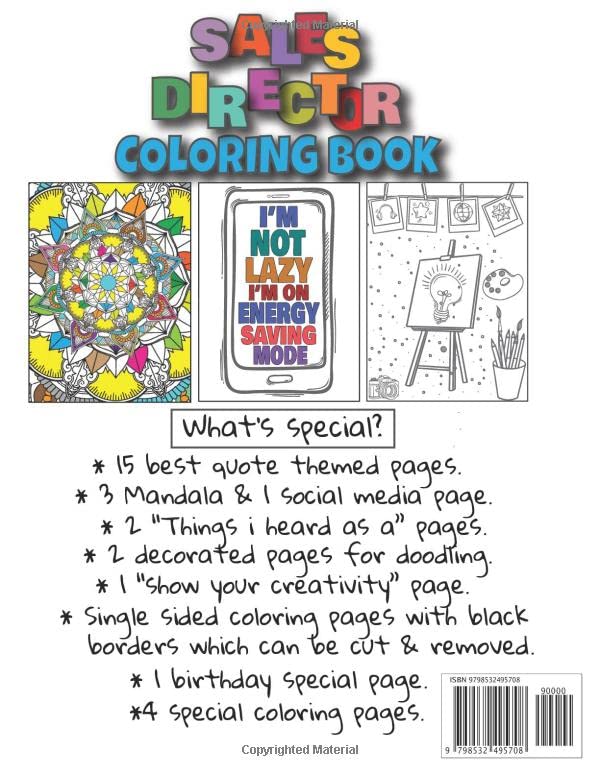 Copyrighted Material
SALES
DIRECTOR
COLORING BOOK
I'M
NOT
LAZY
I'M ON
ENERGY
SAVING
MODE
What's special?
* 15 best quote themed pages.
* 3 Mandala & 1 social media page.
* 2 "Things i heard as a" pages.
* 2 decorated pages for doodling.
* 1 "show your creativity" page.
* Single sided coloring pages with black
borders which can be cut & removed.
* 1 birthday special page.
*4 special coloring pages.
ISBN 9798532495708
90000
9 798532 495708
Copyrighted Material